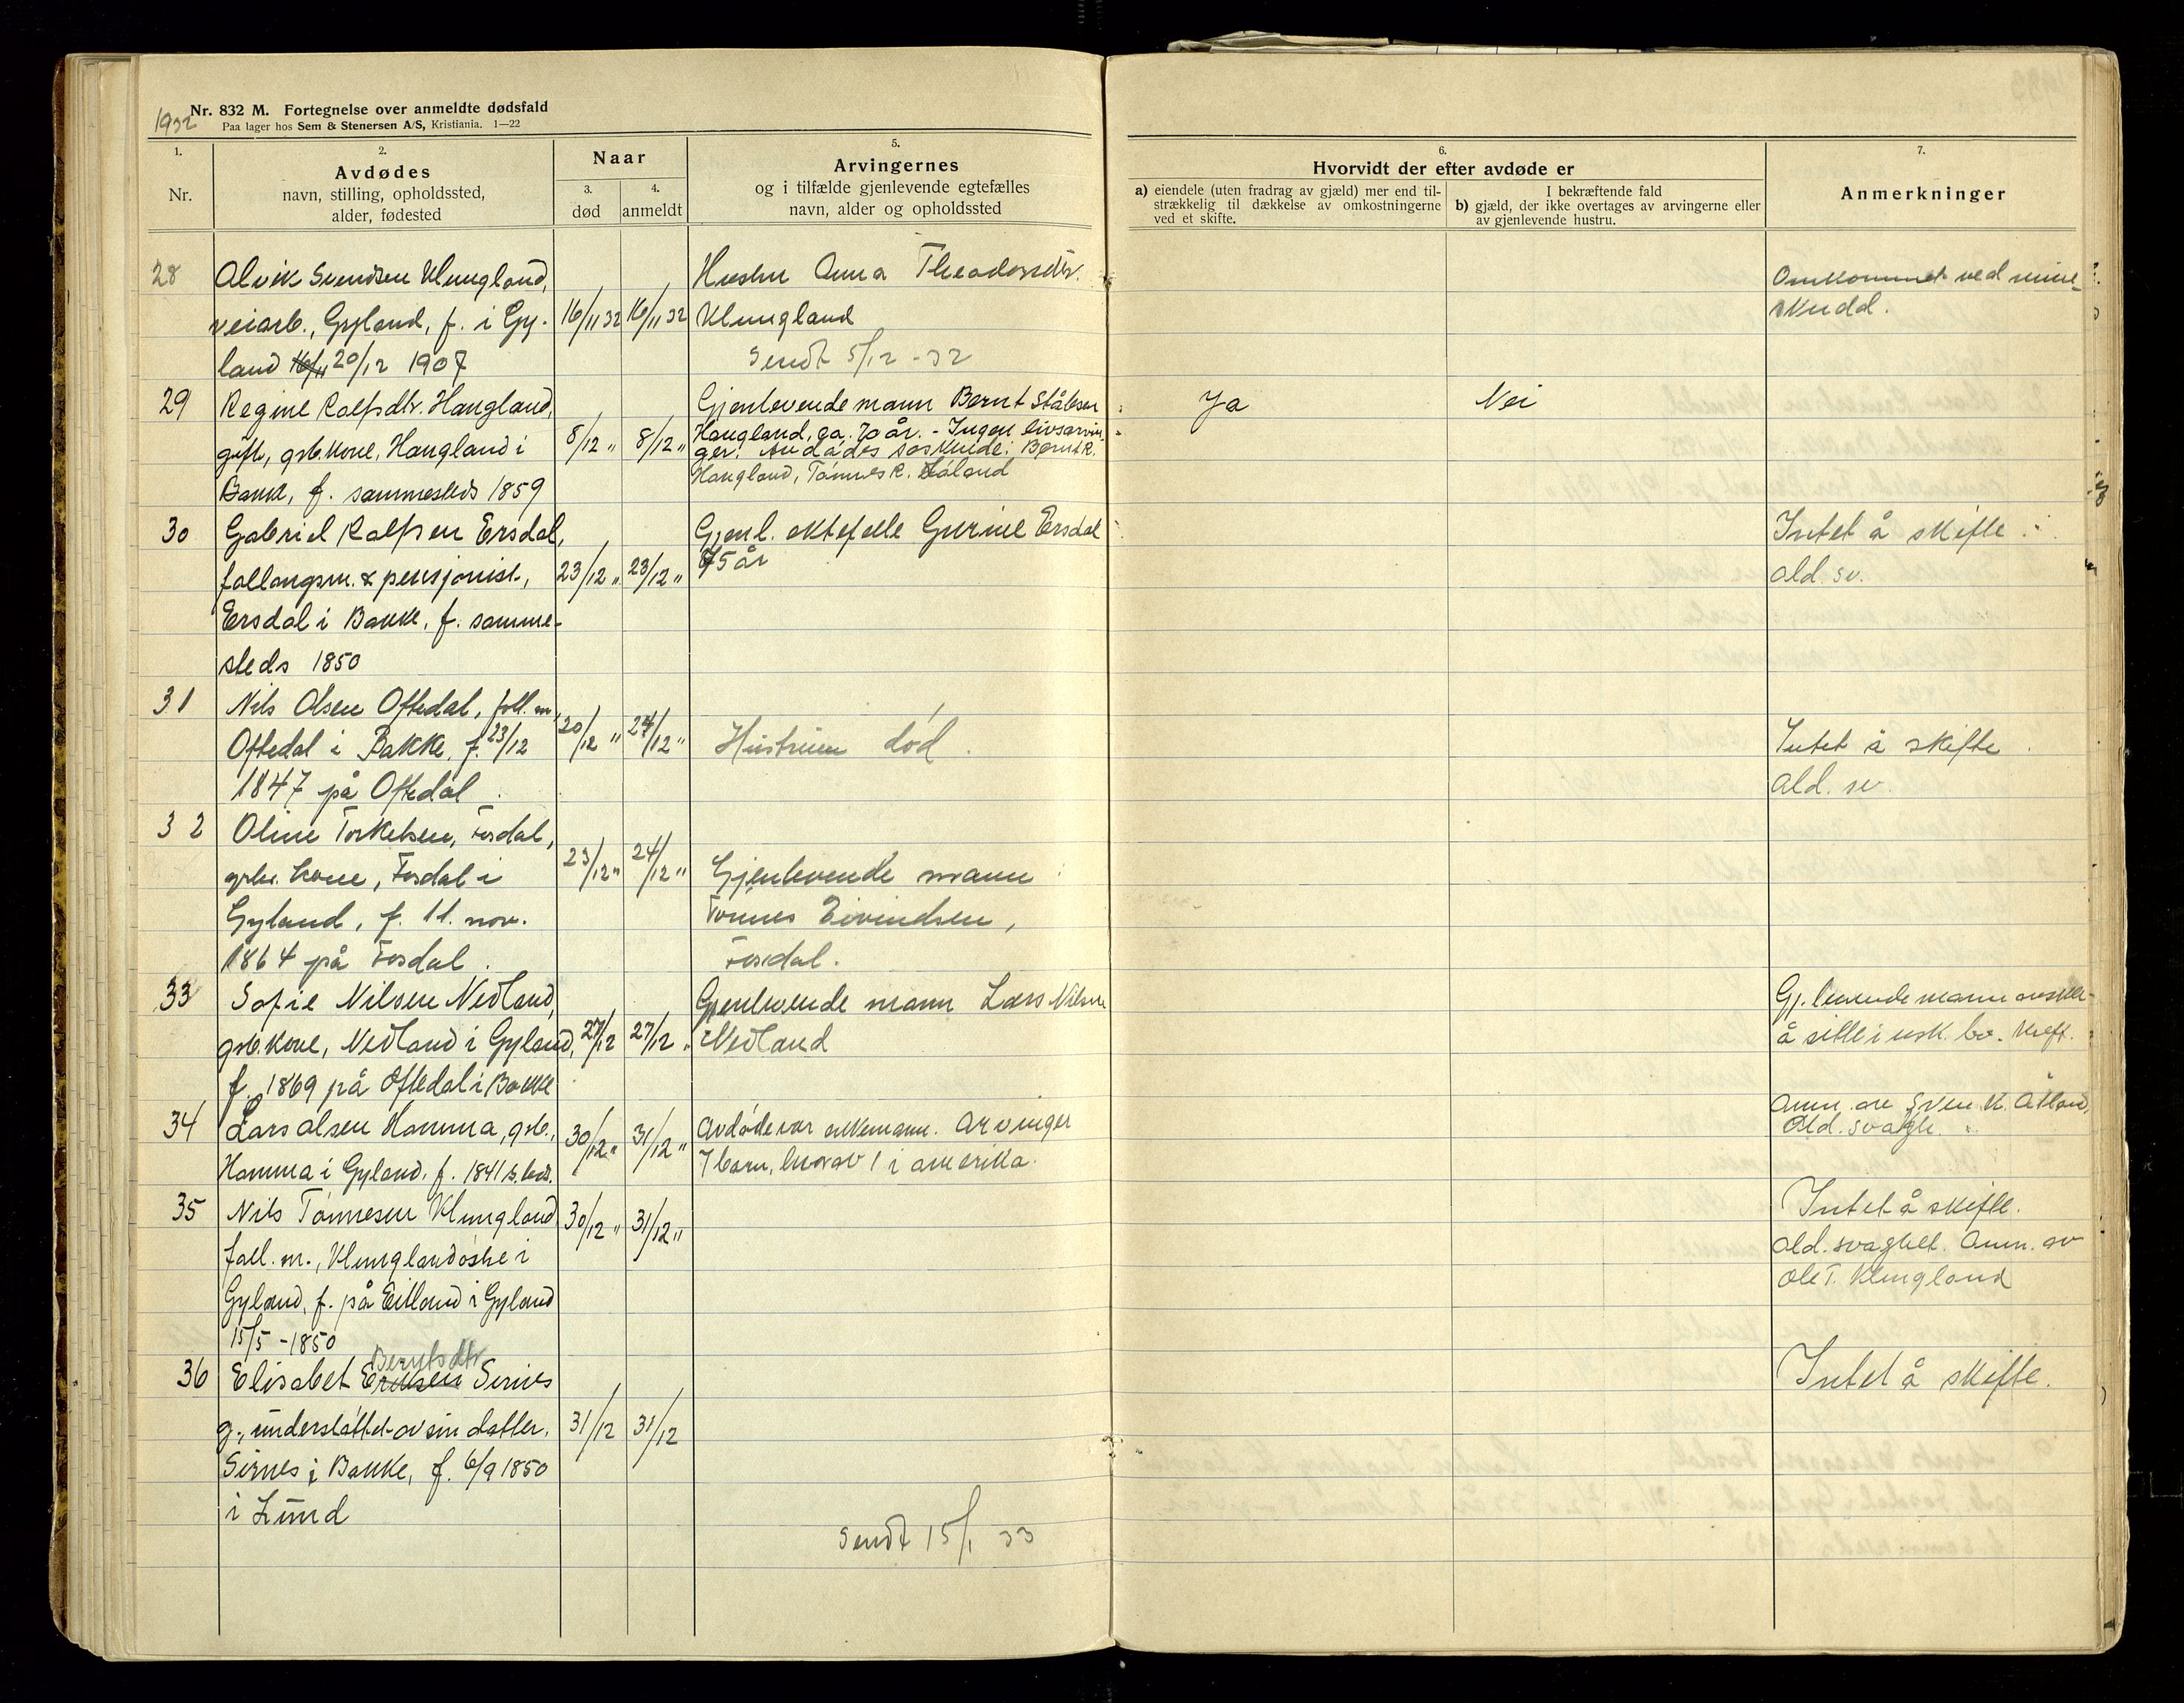 1932
Nr. 832 M. Fortegnelse over anmeldte dødsfald
Paa lager hos Sem & Stenersen A/S, Kristiania. 1—22
1.
Nr.
2.
Avdødes
navn, stilling, opholdssted,
alder, fødested
Naar
3.
død
4.
anmeldt
5.
Arvingernes
og i tilfælde gjenlevende egtefælles
navn, alder og opholdssted
6.
Hvorvidt der efter avdøde er
a) eiendele (uten fradrag av gjæld) mer end til-
strækkelig til dækkelse av omkostningerne
ved et skifte.
I bekræftende fald
b) gjæld, der ikke overtages av arvingerne eller
av gjenlevende hustru.
7.
Anmerkninger
28
Alvik Svendsen Klungland,
veiarb., Gyland, f. i Gy-
land 16/11 20/12 1907
16/11 32
16/11 32
Hustru Anna Theodorsdtr.
Klungland
Sendt 5/12 - 32
Omkommet ved mine-
skudd.
29
Regine Rolfsdtr. Haugland,
gift, grb.kone, Haugland i
Bakke, f. sammesteds 1859
8/12 "
8/12 "
Gjenlevende mann Bernt Ståles
Haugland, ca. 70 år. - Ingen livsarvin-
ger. Avdødes søskende: Bernt R.
Haugland, Tønnes R.
Ja
Nei
30
Gabriel Rolfsen Ersdal,
follaugsm. & pensjonist,
Ersdal i Bakke, f. samme-
steds 1850
23/12 "
23/12 "
Gjenl. ektefelle Gurine Ersdal
75 år
Intet å skifte
ald. sv.
31
Nils Olsen Oftedal, foll. m,
Oftedal i Bakke, f. 23/12
1847 på Oftedal.
20/12 "
24/12 "
Hustruen død.
Intet å skifte
ald. sv.
32
Oline Torkelsen, Fosdal,
grbr. kone, Fosdal i
Gyland, f. 11. nov.
1864 på Fosdal.
23/12 "
24/12 "
Gjenlevende mann
Tønnes Eivindsen,
Fosdal.
33
Sofie Nilsen Nedland,
grb.kone, Nedland i Gyland,
f. 1869 på Oftedal i Bakke
27/12
27/12 "
Gjenlevende mann Lars Nilsen
Nedland
Gj.levende mann ønsker
å sitte i usk. bo. Kreft.
34
Lars Olsen Hamma, grb.,
Hamma i Gyland, f. 1841 s. steds.
30/12 "
31/12 "
Avdøde var enkemann. Arvinger
7 barn, hvorav 1 i Amerika.
Anm. av Sven K. Åtland,
Ald. svagh.
35
Nils Tønnesen Klungland
foll. m., Klunglandøstre i
Gyland, f. på Eitland i Gyland
15/5 - 1850
30/12 "
31/12 "
Intet å skifte.
Ald. svaghet. Anm. av
Ole T. Klungland
36
Berntsdtr
Elisabet Eriksen Sirnes
g., understøttet av sin datter.
Sirnes i Bakke, f. 6/9 1850
i Lund
31/12
31/12
Intet å skifte.
Sendt 15/1 33